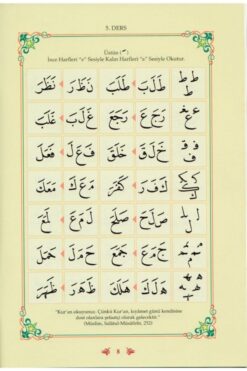 5. DERS
Üstün (ـَ)
İnce Harfleri "e" Sesiyle Kalın Harfleri "a" Sesiyle Okutur.
ط ط ط طَ لَ بَ طَلَبَ نَ ظَ رَ نَظَرَ
ع ع غ رَ جَ عَ رَجَعَ غَ لَ بَ غَلَبَ
خَ لَ قَ خَلَقَ فَ عَ لَ فَعَلَ
كَ فَ رَ كَفَرَ مَ عَ كَ مَعَكَ
صَ لَ حَ صَلَحَ لَ مَ عَ لَمَعَ
جَ مَ عَ جَمَعَ حَ مَ لَ حَمَلَ
هَ لَ كَ هَلَكَ ظَ هَ رَ ظَهَرَ
"Kur'an okuyunuz. Çünkü Kur'an, kıyamet günü kendisine
dost olanlara şefaatçi olarak gelecektir."
(Müslim, Salâtü'l-Müsâfirîn, 252)
8